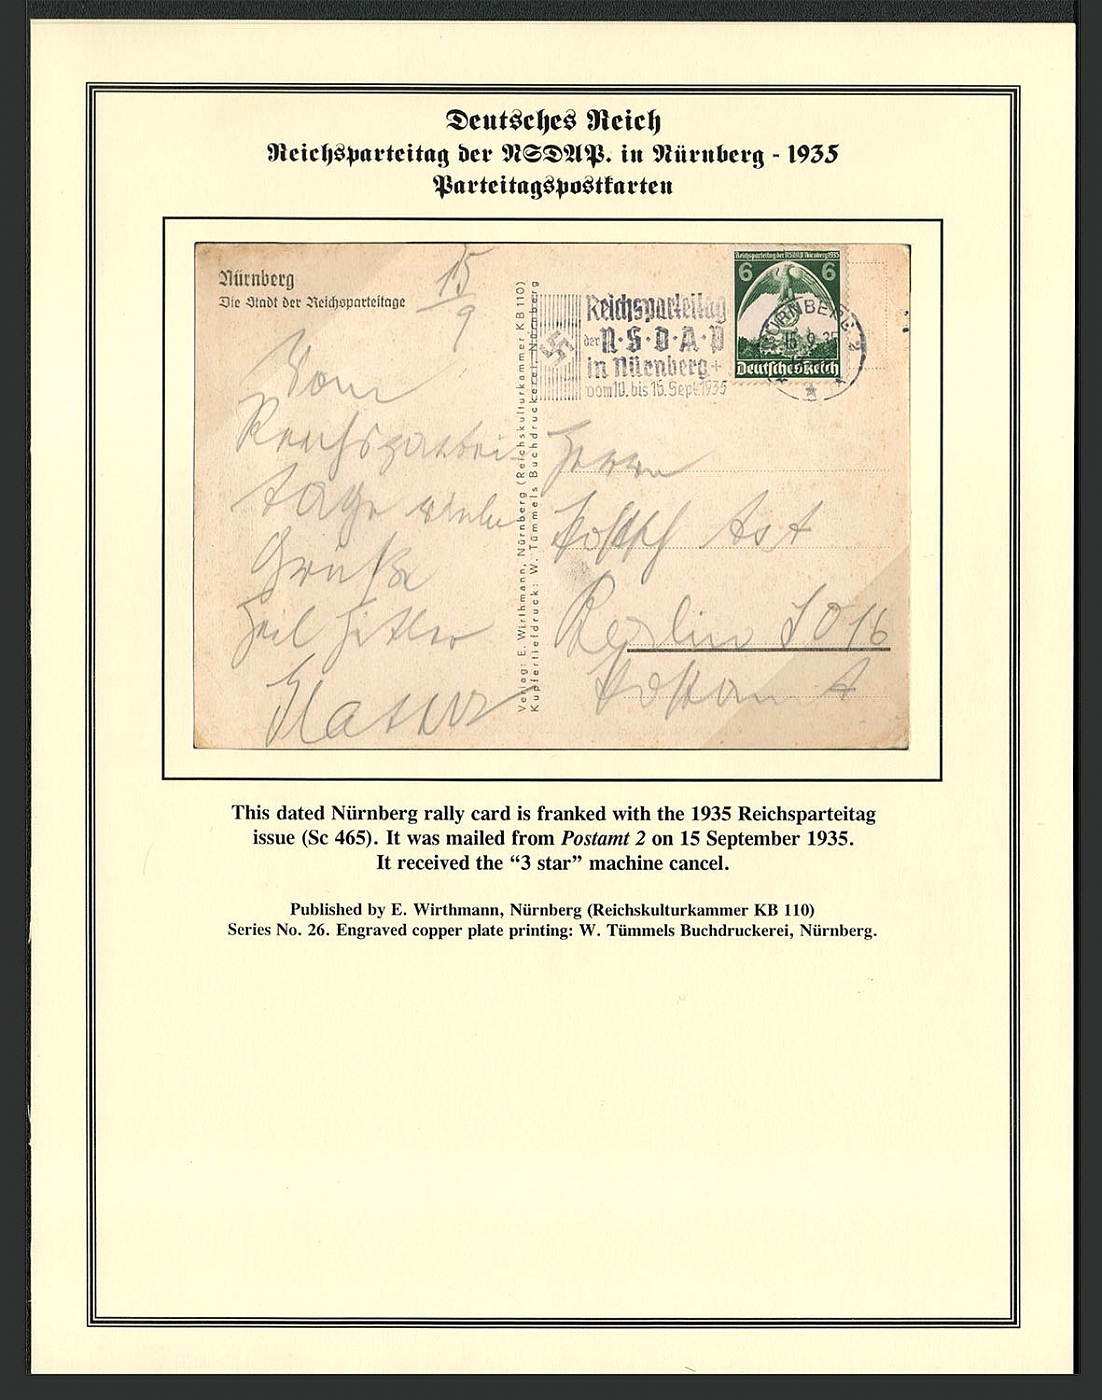 Deutsches Reich
Reichsparteitag der NSDAP. in Nürnberg - 1935
Parteitagspostkarten
Nürnberg
Die Stadt der Reichsparteitage
15
9
Vom
Reichspartei
tage viele
Grüße
Heil Hitler
Verlag: E. Wirthmann, Nürnberg (Reichskulturkammer KB 110)
Kupfertiefdruck: W. Tümmels Buchdruckerei, Nürnberg
Reichsparteitag
der N·S·D·A·P
in Nürnberg
vom 10. bis 16. Sept. 1935
Reichsparteitag der NSDAP Nürnberg 1935
6 6
Deutsches Reich
NÜRNBERG 2
15.9.35
Herrn
Ast
Berlin SO 16
Postamt
This dated Nürnberg rally card is franked with the 1935 Reichsparteitag
issue (Sc 465). It was mailed from Postamt 2 on 15 September 1935.
It received the “3 star” machine cancel.
Published by E. Wirthmann, Nürnberg (Reichskulturkammer KB 110)
Series No. 26. Engraved copper plate printing: W. Tümmels Buchdruckerei, Nürnberg.